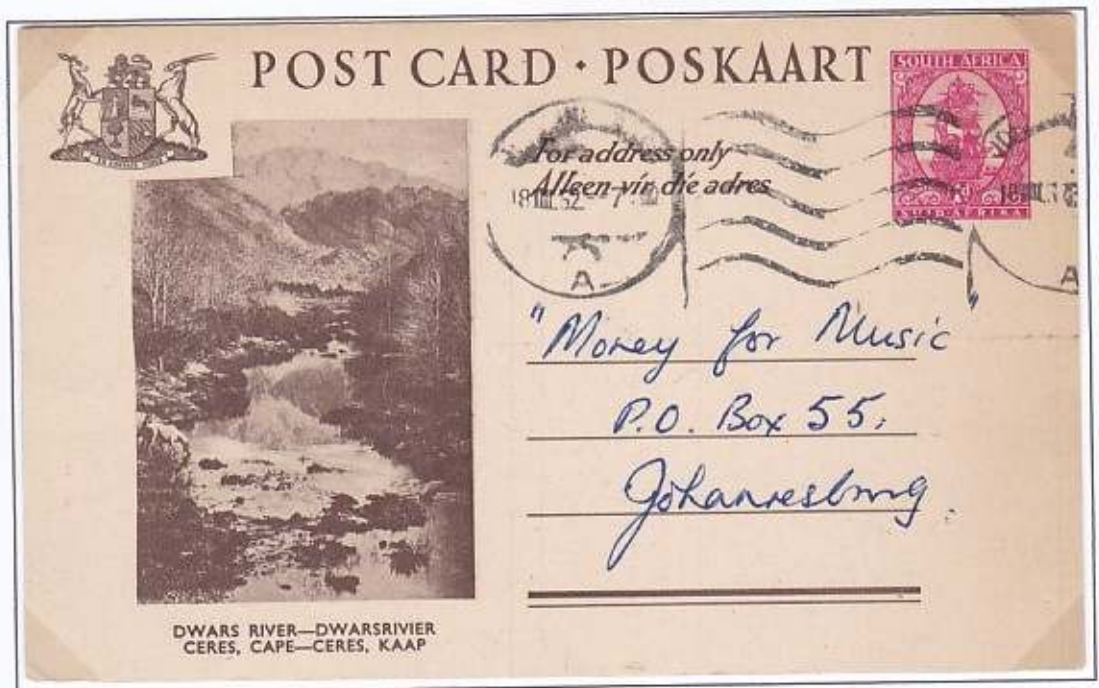 POST CARD · POSKAART
SOUTH AFRICA
SUID-AFRIKA
For address only
Alleen vir die adres
A
A
"Money for Music"
P.O. Box 55.
Johannesburg.
DWARS RIVER—DWARSRIVIER
CERES, CAPE—CERES, KAAP